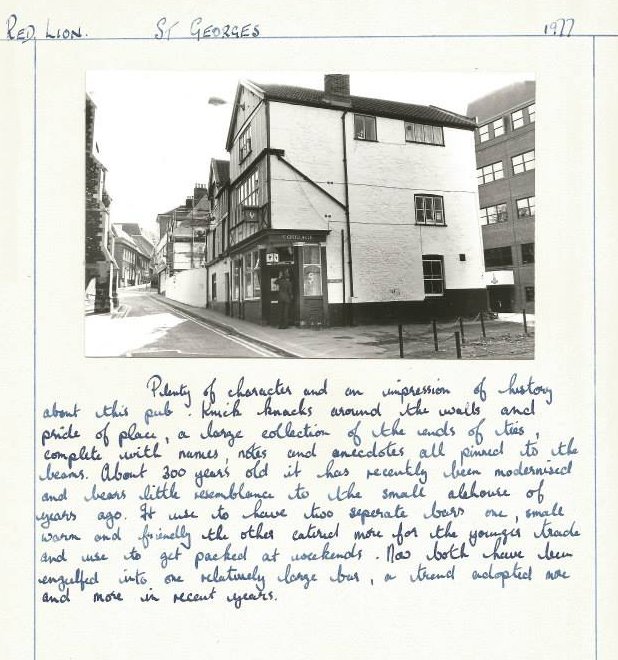 RED LION. ST GEORGES 1977
COURAGE
Plenty of character and an impression of history
about this pub. Knick knacks around the walls and
pride of place, a large collection of the ends of ties,
complete with names, notes and anecdotes all pinned to the
beams. About 300 years old it has recently been modernised
and bears little resemblance to the small alehouse of
years ago. It use to have two seperate bars one, small
warm and friendly the other catered more for the younger trade
and use to get packed at weekends. Now both have been
engulfed into one relatively large bar, a trend adopted more
and more in recent years.